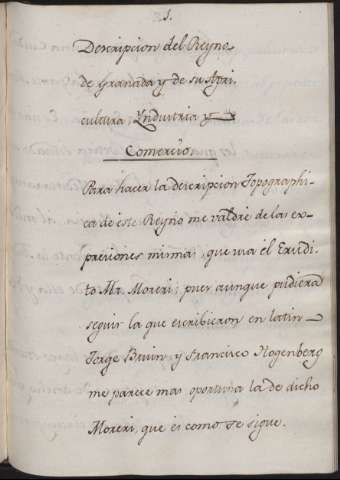 1.
Descripcion del Reyno
de Granada y de su Agri
cultura, Yndustria y
Comercio.
Para hacer la descripcion Topographi-
ca de este Reyno me valdre de las ex-
presiones mismas, que usa el Erudi-
to Mr. Moreri; pues aunque pudiera
seguir la que escribieron en latin
Jorge Bruin y Francisco Hogenberg
me parece mas oportuna la de dicho
Moreri, que es como se sigue.